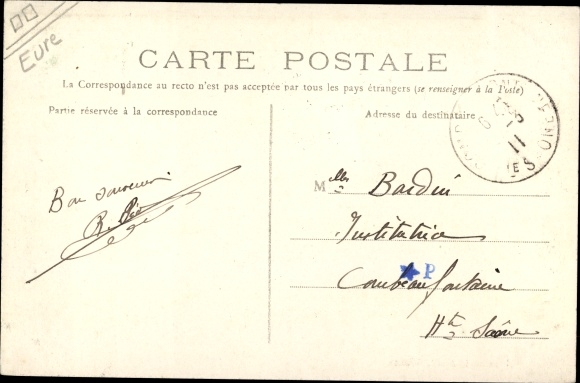 Eure
CARTE POSTALE
La Correspondance au recto n'est pas acceptée par tous les pays étrangers (se renseigner à la Poste)
Partie réservée à la correspondance
Adresse du destinataire
6
11
Bon souvenir
Mlles Bardin
Institutrice
Combeaufontaine
P
Hte Saône